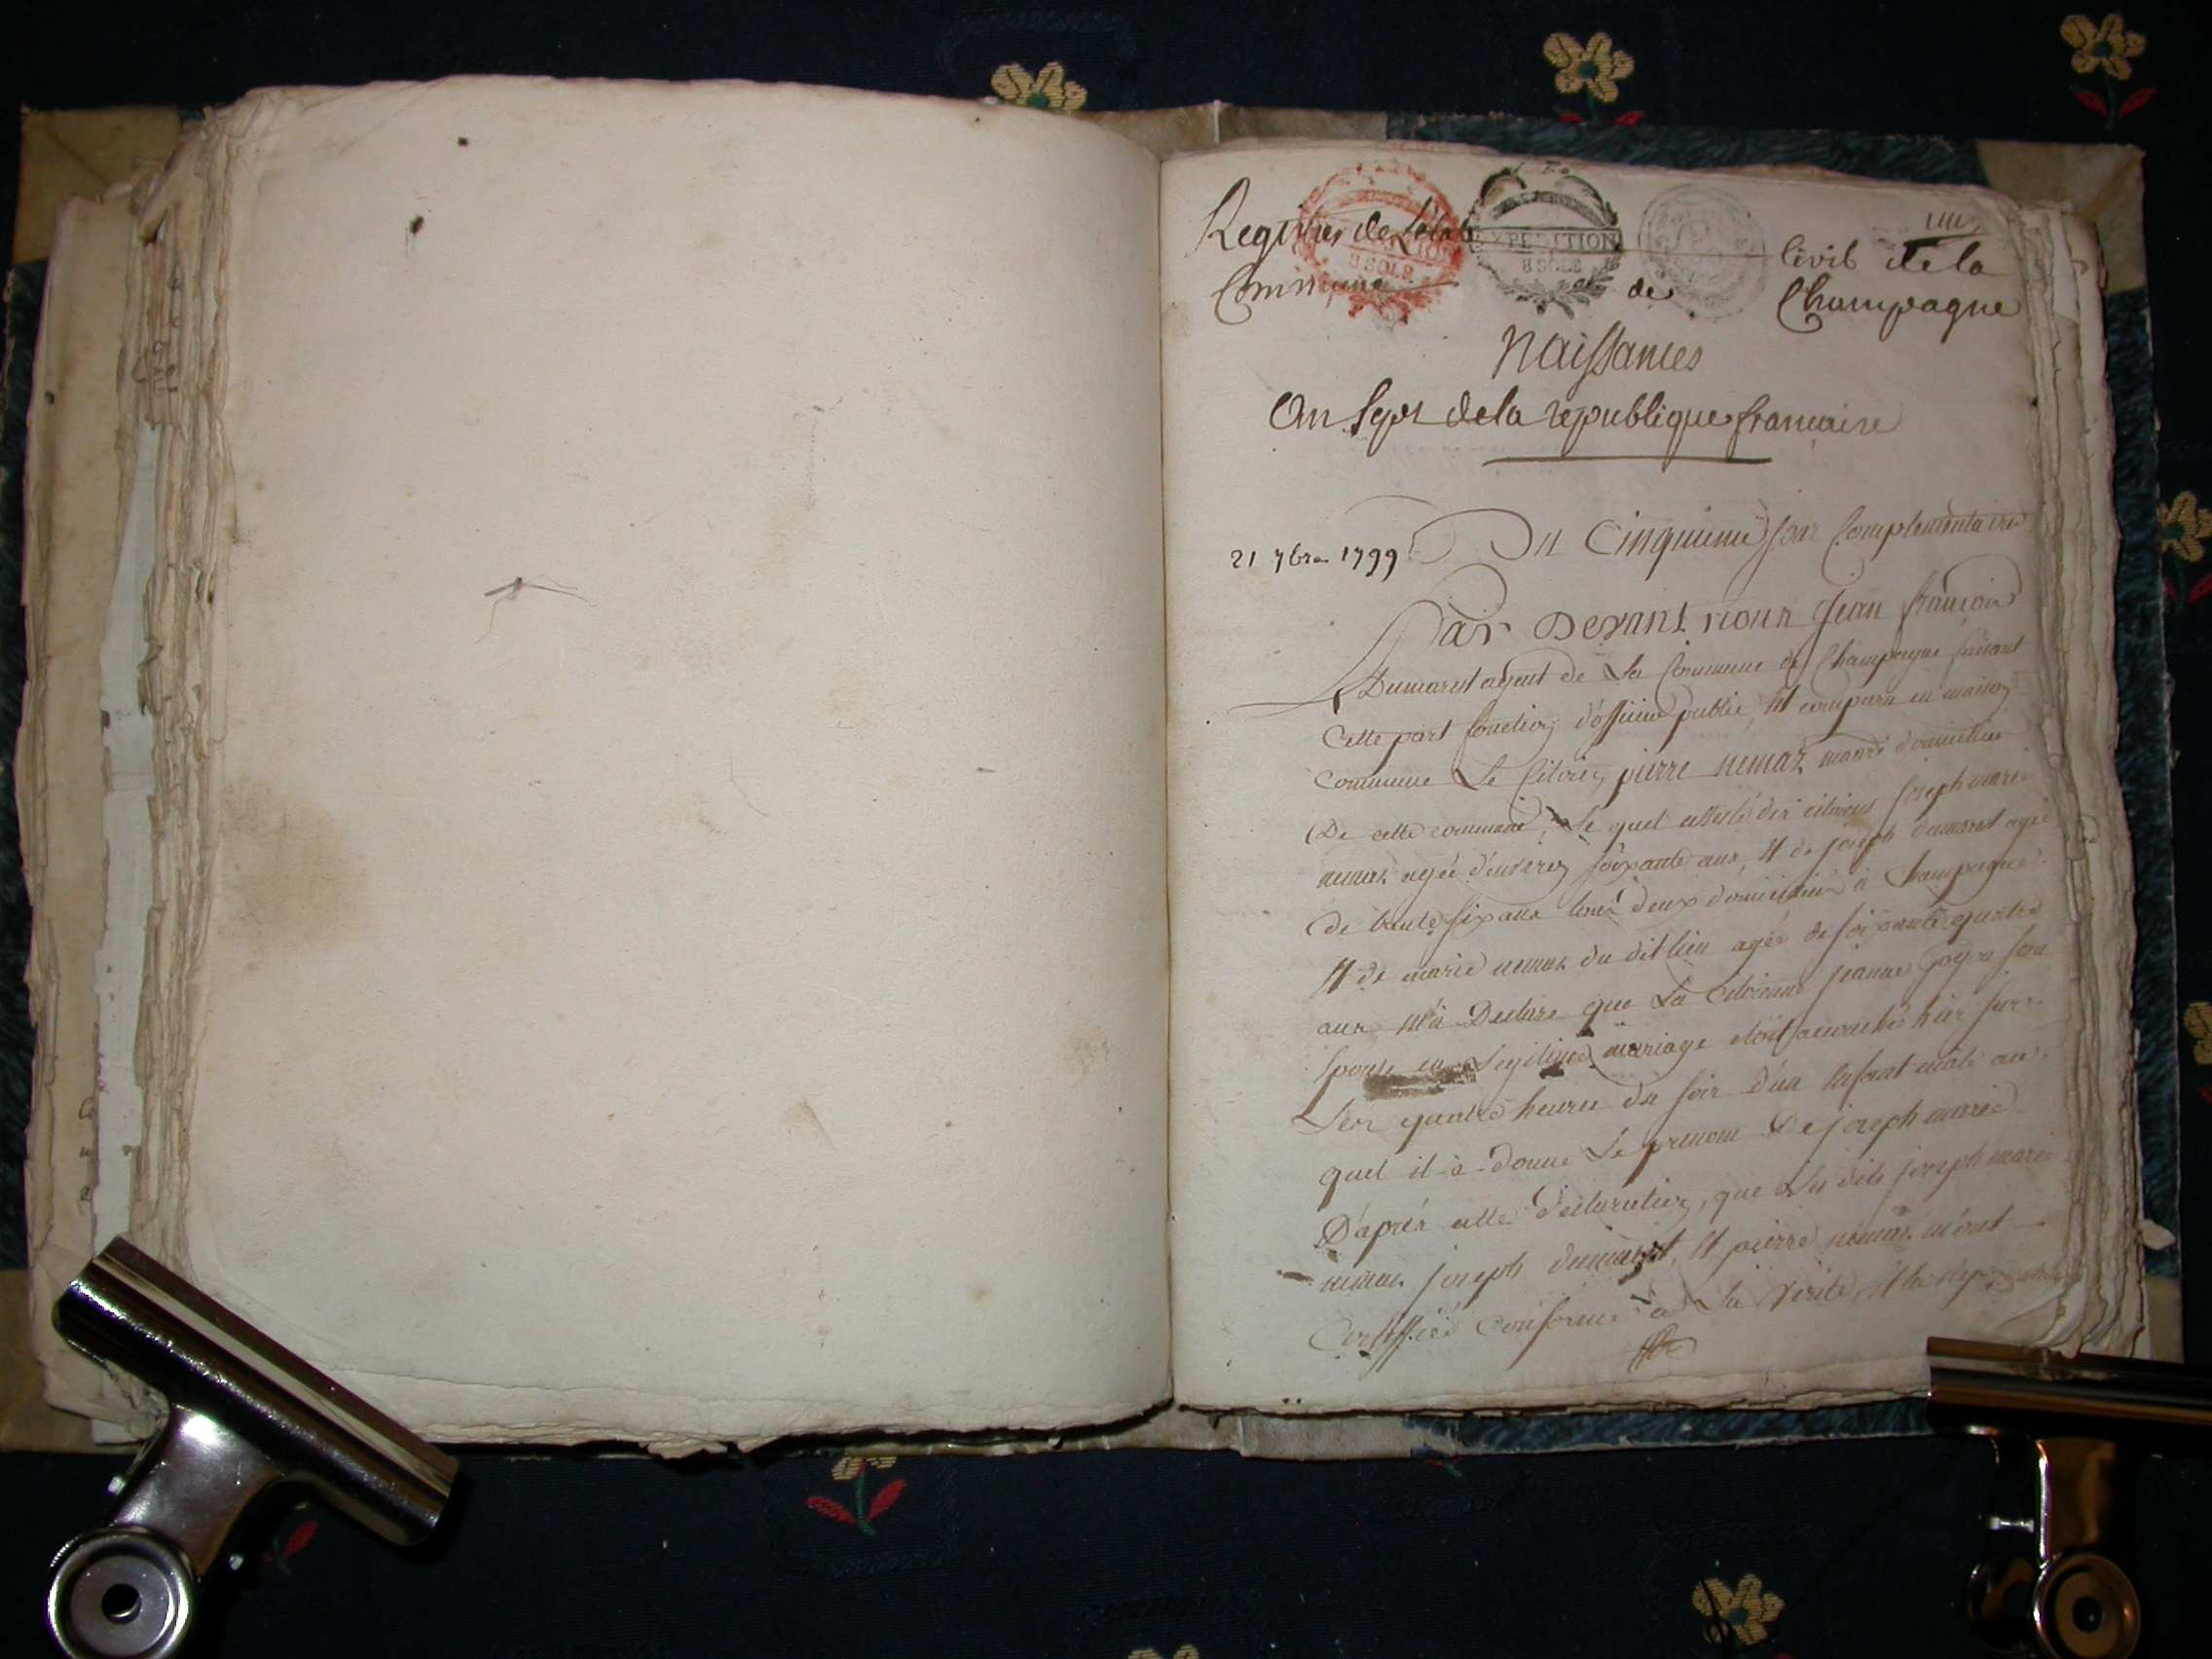 Registres de L'état civil de la
Commune de Champagne
Naissances
An Sept de la republique francaise
EXPEDITION
8 SOLS
21 7bre 1799
Du Cinquieme jour Complementaire
Par Devant nous Jean françois
Dumarest agent de La Commune de Champagne faisant
Cette part fonction d'officier public, Est comparu en maison
commune Le Citoien pierre nemoz domicilié
De cette commune, Le quel assisté des citoiens joseph marie
nemoz agée d'environ soixante ans, Et de joseph dumarest agé
de trente six ans tous deux domiciliés à Champagne
Et de marie nemoz du dit lieu agée de soixante quatre
ans m'à Declare que La Citoienne jeanne son
Epouse en Legitime mariage etoit accouchée hier sur
Les quatre heures du soir d'un Enfant mâle au
quel il à donné Le prenom De joseph marie
D'après cette declaration, que Les dits joseph marie
nemoz joseph dumarest, Et pierre nemoz m'ont
Certiffiée conforme à La verité, Et la